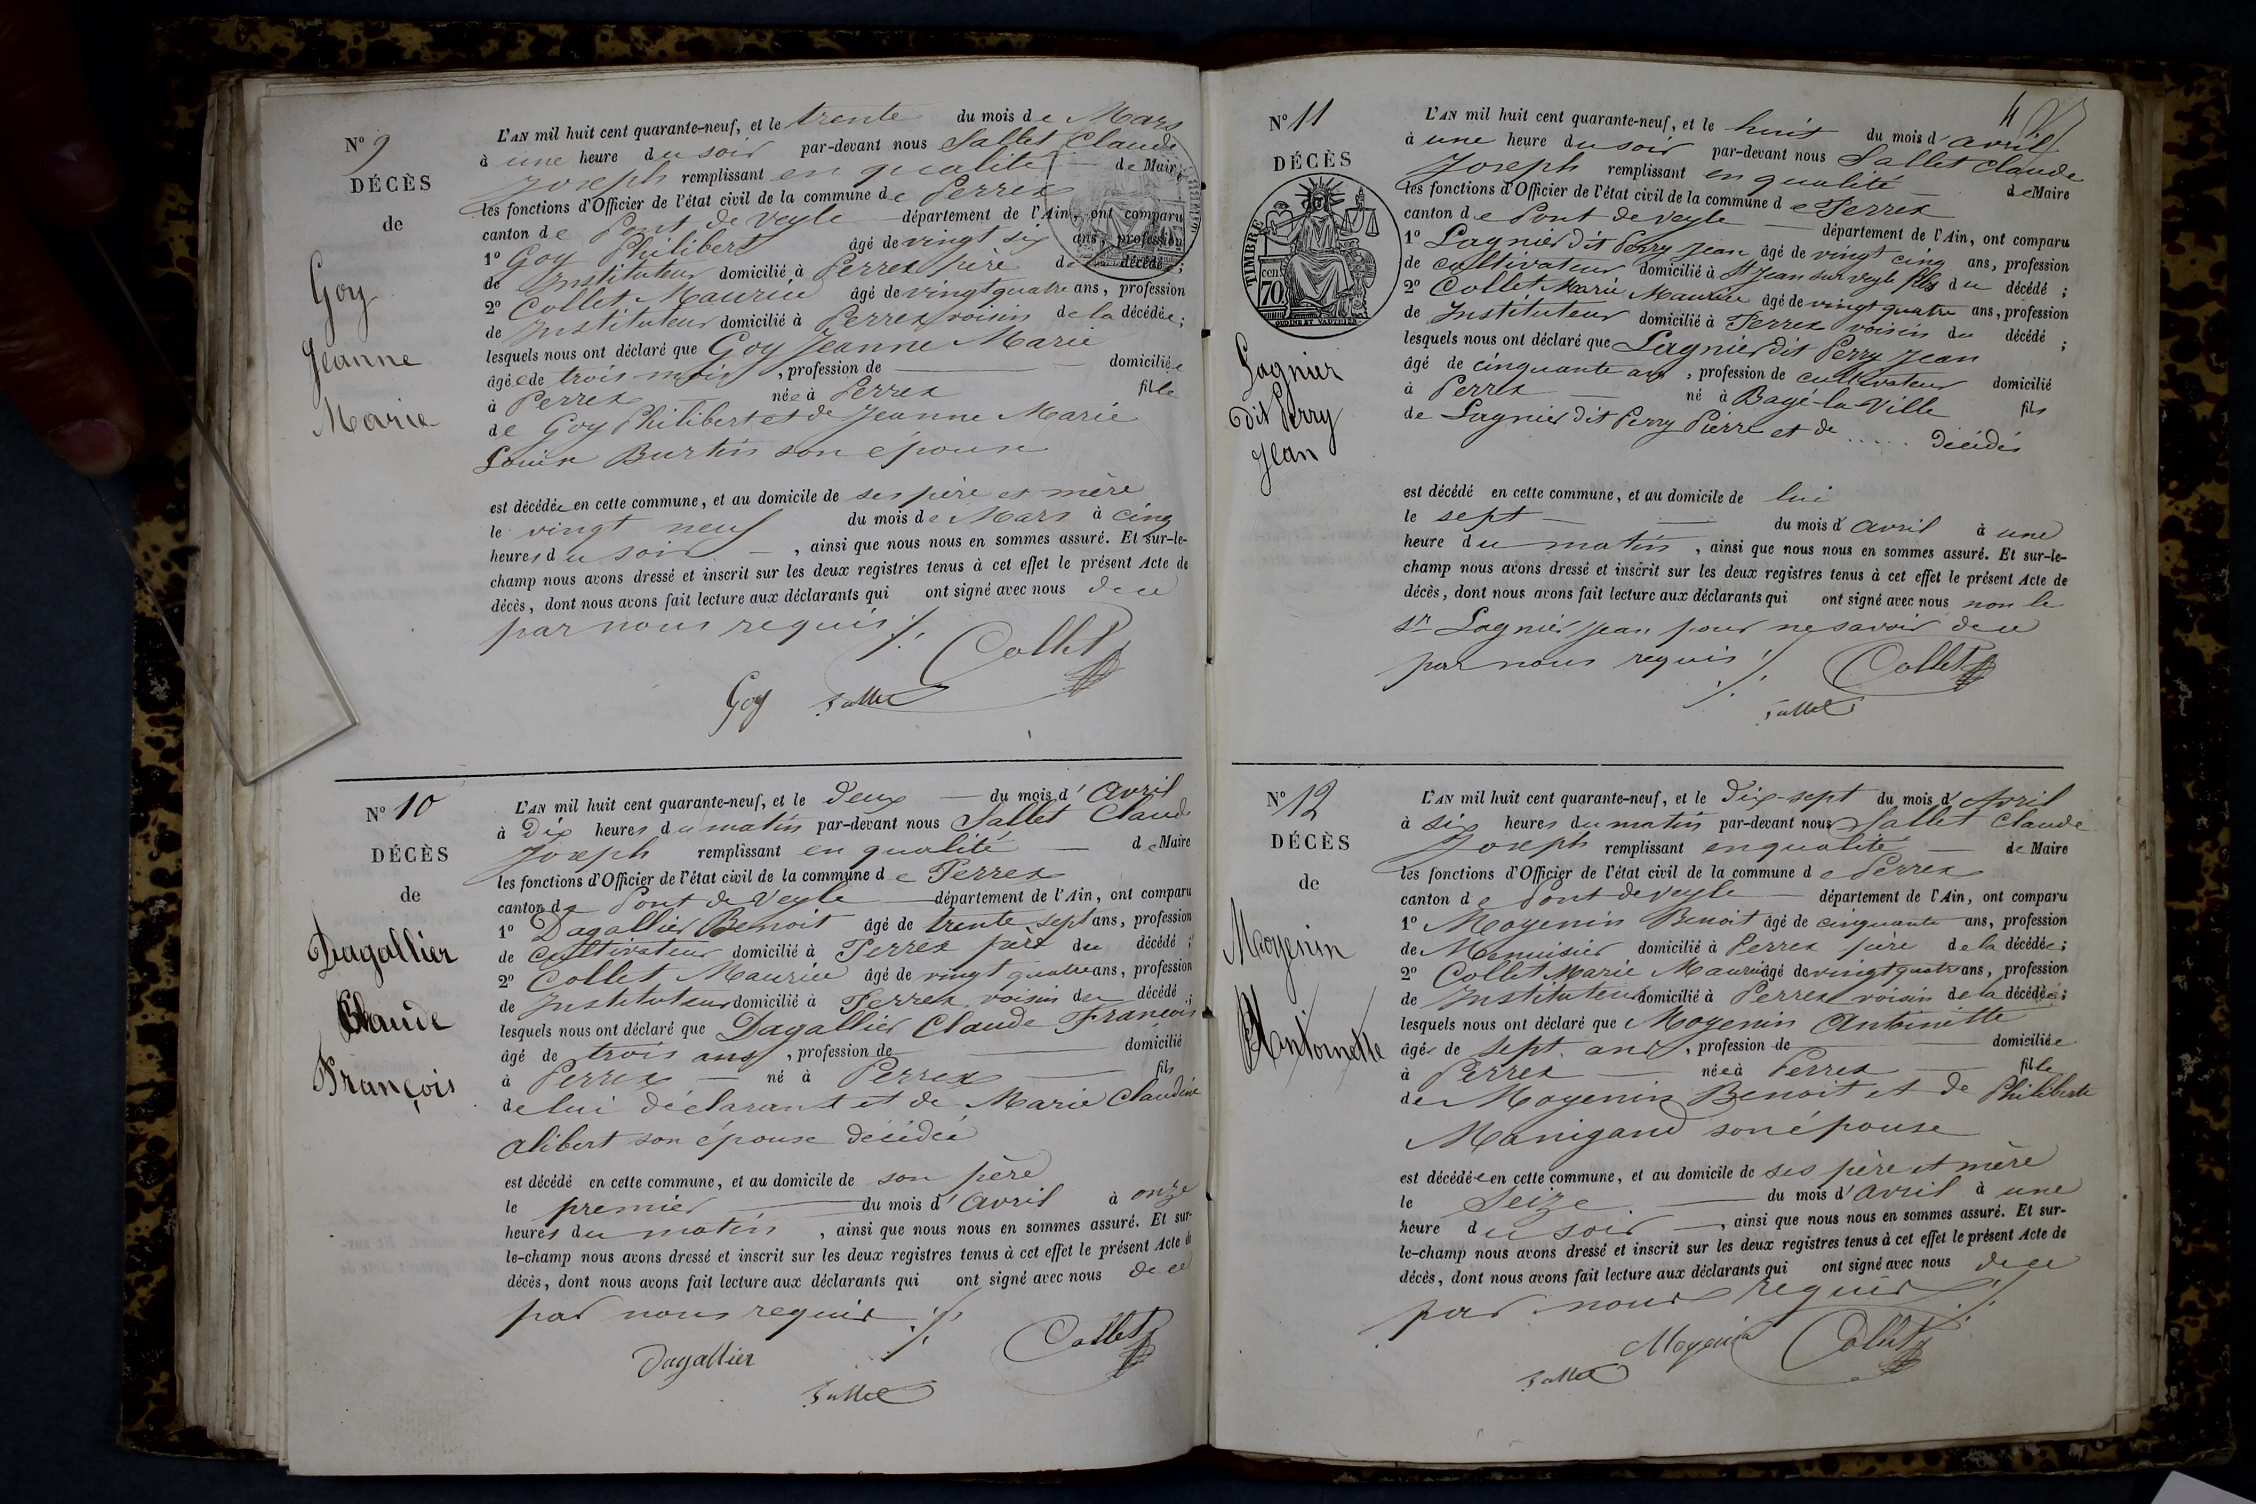 N° 9
DÉCÈS
de
Goy
Jeanne
Marie
L'AN mil huit cent quarante-neuf, et le trente du mois de Mars
à une heure du soir par-devant nous Sallet Claude
Joseph remplissant en qualité de Maire
les fonctions d'Officier de l'état civil de la commune de Perrex
canton de Pont de Veyle département de l'Ain, ont comparu
1° Goy Philibert âgé de vingt six ans, profession
de Instituteur domicilié à Perrex père de la décédée;
2° Collet Maurice âgé de vingt quatre ans, profession
de Instituteur domicilié à Perrex voisin de la décédée;
lesquels nous ont déclaré que Goy Jeanne Marie
âgée de trois mois, profession de domiciliée
à Perrex née à Perrex fille
de Goy Philibert et de Jeanne Marie
Burtin son épouse
est décédée en cette commune, et au domicile de ses père et mère
le vingt neuf du mois de Mars à cinq
heures du soir, ainsi que nous nous en sommes assuré. Et sur-le-
champ nous avons dressé et inscrit sur les deux registres tenus à cet effet le présent Acte de
décès, dont nous avons fait lecture aux déclarants qui ont signé avec nous de ce
par nous requis ./.
Collet
Goy Sallet
N° 10
DÉCÈS
de
Dagallier
Claude
François
L'AN mil huit cent quarante-neuf, et le deux du mois d'Avril
à Dix heures du matin par-devant nous Sallet Claude
Joseph remplissant en qualité de Maire
les fonctions d'Officier de l'état civil de la commune de Perrex
canton de Pont de Veyle département de l'Ain, ont comparu
1° Dagallier Benoit âgé de trente sept ans, profession
de cultivateur domicilié à Perrex père du décédé;
2° Collet Maurice âgé de vingt quatre ans, profession
de Instituteur domicilié à Perrex voisin du décédé;
lesquels nous ont déclaré que Dagallier Claude François
âgé de trois ans, profession de domicilié
à Perrex né à Perrex fils
de lui déclarant et de Marie Claudine
Alibert son épouse décédée
est décédé en cette commune, et au domicile de son père
le premier du mois d'Avril à onze
heures du matin, ainsi que nous nous en sommes assuré. Et sur-
le-champ nous avons dressé et inscrit sur les deux registres tenus à cet effet le présent Acte de
décès, dont nous avons fait lecture aux déclarants qui ont signé avec nous de ce
par nous requis ./.
Dagallier Collet
Sallet
4
N° 11
DÉCÈS
TIMBRE
70 cen
Lagnier
Dit Perry
Jean
L'AN mil huit cent quarante-neuf, et le huit du mois d'avril
à une heure du soir par-devant nous Sallet Claude
Joseph remplissant en qualité de Maire
les fonctions d'Officier de l'état civil de la commune de Perrex
canton de Pont de veyle département de l'Ain, ont comparu
1° Lagnier dit Perry Jean âgé de vingt cinq ans, profession
de cultivateur domicilié à St Jean sur veyle fils du décédé;
2° Collet Marie Maurice âgé de vingt quatre ans, profession
de Instituteur domicilié à Perrex voisin du décédé;
lesquels nous ont déclaré que Lagnier dit Perry Jean
âgé de cinquante ans, profession de cultivateur domicilié
à Perrex né à Bagé-la-Ville fils
de Lagnier dit Perry Pierre et de ...... Décédés
est décédé en cette commune, et au domicile de lui
le sept du mois d'avril à une
heure du matin, ainsi que nous nous en sommes assuré. Et sur-le-
champ nous avons dressé et inscrit sur les deux registres tenus à cet effet le présent Acte de
décès, dont nous avons fait lecture aux déclarants qui ont signé avec nous non le
sr Lagnier Jean pour ne savoir de ce
par nous requis ./. Collet
Sallet
N° 12
DÉCÈS
de
Moyenin
Antoinette
L'AN mil huit cent quarante-neuf, et le Dix-sept du mois d'Avril
à six heures du matin par-devant nous Sallet Claude
Joseph remplissant en qualité de Maire
les fonctions d'Officier de l'état civil de la commune de Perrex
canton de Pont de veyle département de l'Ain, ont comparu
1° Moyenin Benoit âgé de cinquante ans, profession
de Menuisier domicilié à Perrex père de la décédée;
2° Collet Marie Maurice âgé de vingt quatre ans, profession
de Instituteur domicilié à Perrex voisin de la décédée;
lesquels nous ont déclaré que Moyenin Antoinette
âgée de sept ans, profession de domiciliée
à Perrex née à Perrex fille
de Moyenin Benoit et de Philiberte
Manigand son épouse
est décédée en cette commune, et au domicile de ses père et mère
le Seize du mois d'avril à une
heure du soir, ainsi que nous nous en sommes assuré. Et sur-
le-champ nous avons dressé et inscrit sur les deux registres tenus à cet effet le présent Acte de
décès, dont nous avons fait lecture aux déclarants qui ont signé avec nous de ce
par nous requis ./.
Moyenin Collet
Sallet